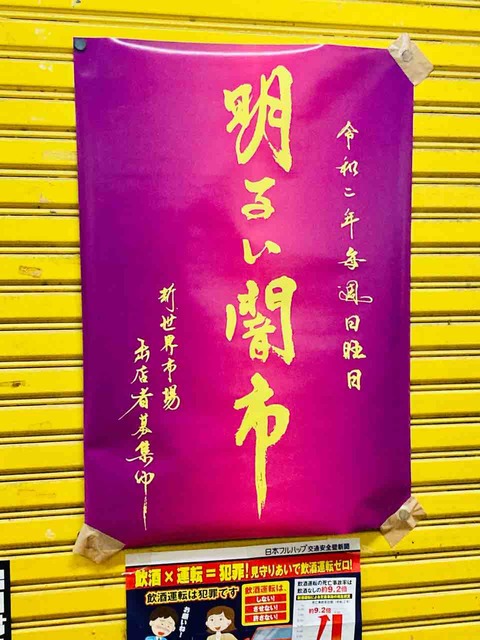 令和二年毎週日曜日
明るい闇市
新世界市場
出店者募集中
日本フルハップ交通安全壁新聞
飲酒×運転=犯罪!見守りあいで飲酒運転ゼロ!
飲酒運転は犯罪です
飲酒運転は、
しない!
させない!
許さない!
飲酒運転の死亡事故率は
飲酒なしの約9.2倍
約9.2倍